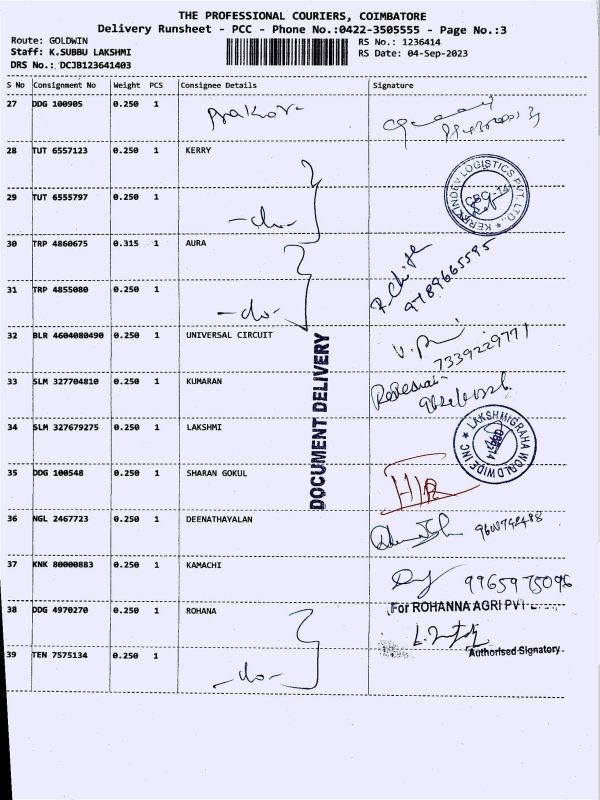 THE PROFESSIONAL COURIERS, COIMBATORE
Delivery Runsheet - PCC - Phone No.:0422-3505555 - Page No.:3
Route: GOLDWIN
RS No.: 1236414
Staff: K.SUBBU LAKSHMI
RS Date: 04-Sep-2023
DRS No.: DCJB123641403
S No Consignment No Weight PCS Consignee Details Signature
27 DDG 100905 0.250 1
28 TUT 6557123 0.250 1 KERRY
KERRY INDEV LOGISTICS PVT. LTD.
29 TUT 6555797 0.250 1 -do-
30 TRP 4860675 0.315 1 AURA
9789665595
31 TRP 4855080 0.250 1 -do-
32 BLR 4604080490 0.250 1 UNIVERSAL CIRCUIT
7339229771
DOCUMENT DELIVERY
33 SLM 327704810 0.250 1 KUMARAN
34 SLM 327679275 0.250 1 LAKSHMI
LAKSHMIGRAHA WORLDWIDE INC
35 DDG 100548 0.250 1 SHARAN GOKUL
36 NGL 2467723 0.250 1 DEENATHAYALAN
37 KNK 80000883 0.250 1 KAMACHI
9965975096
38 DDG 4970270 0.250 1 ROHANA
For ROHANNA AGRI PVT
Authorised Signatory
39 TEN 7575134 0.250 1 -do-